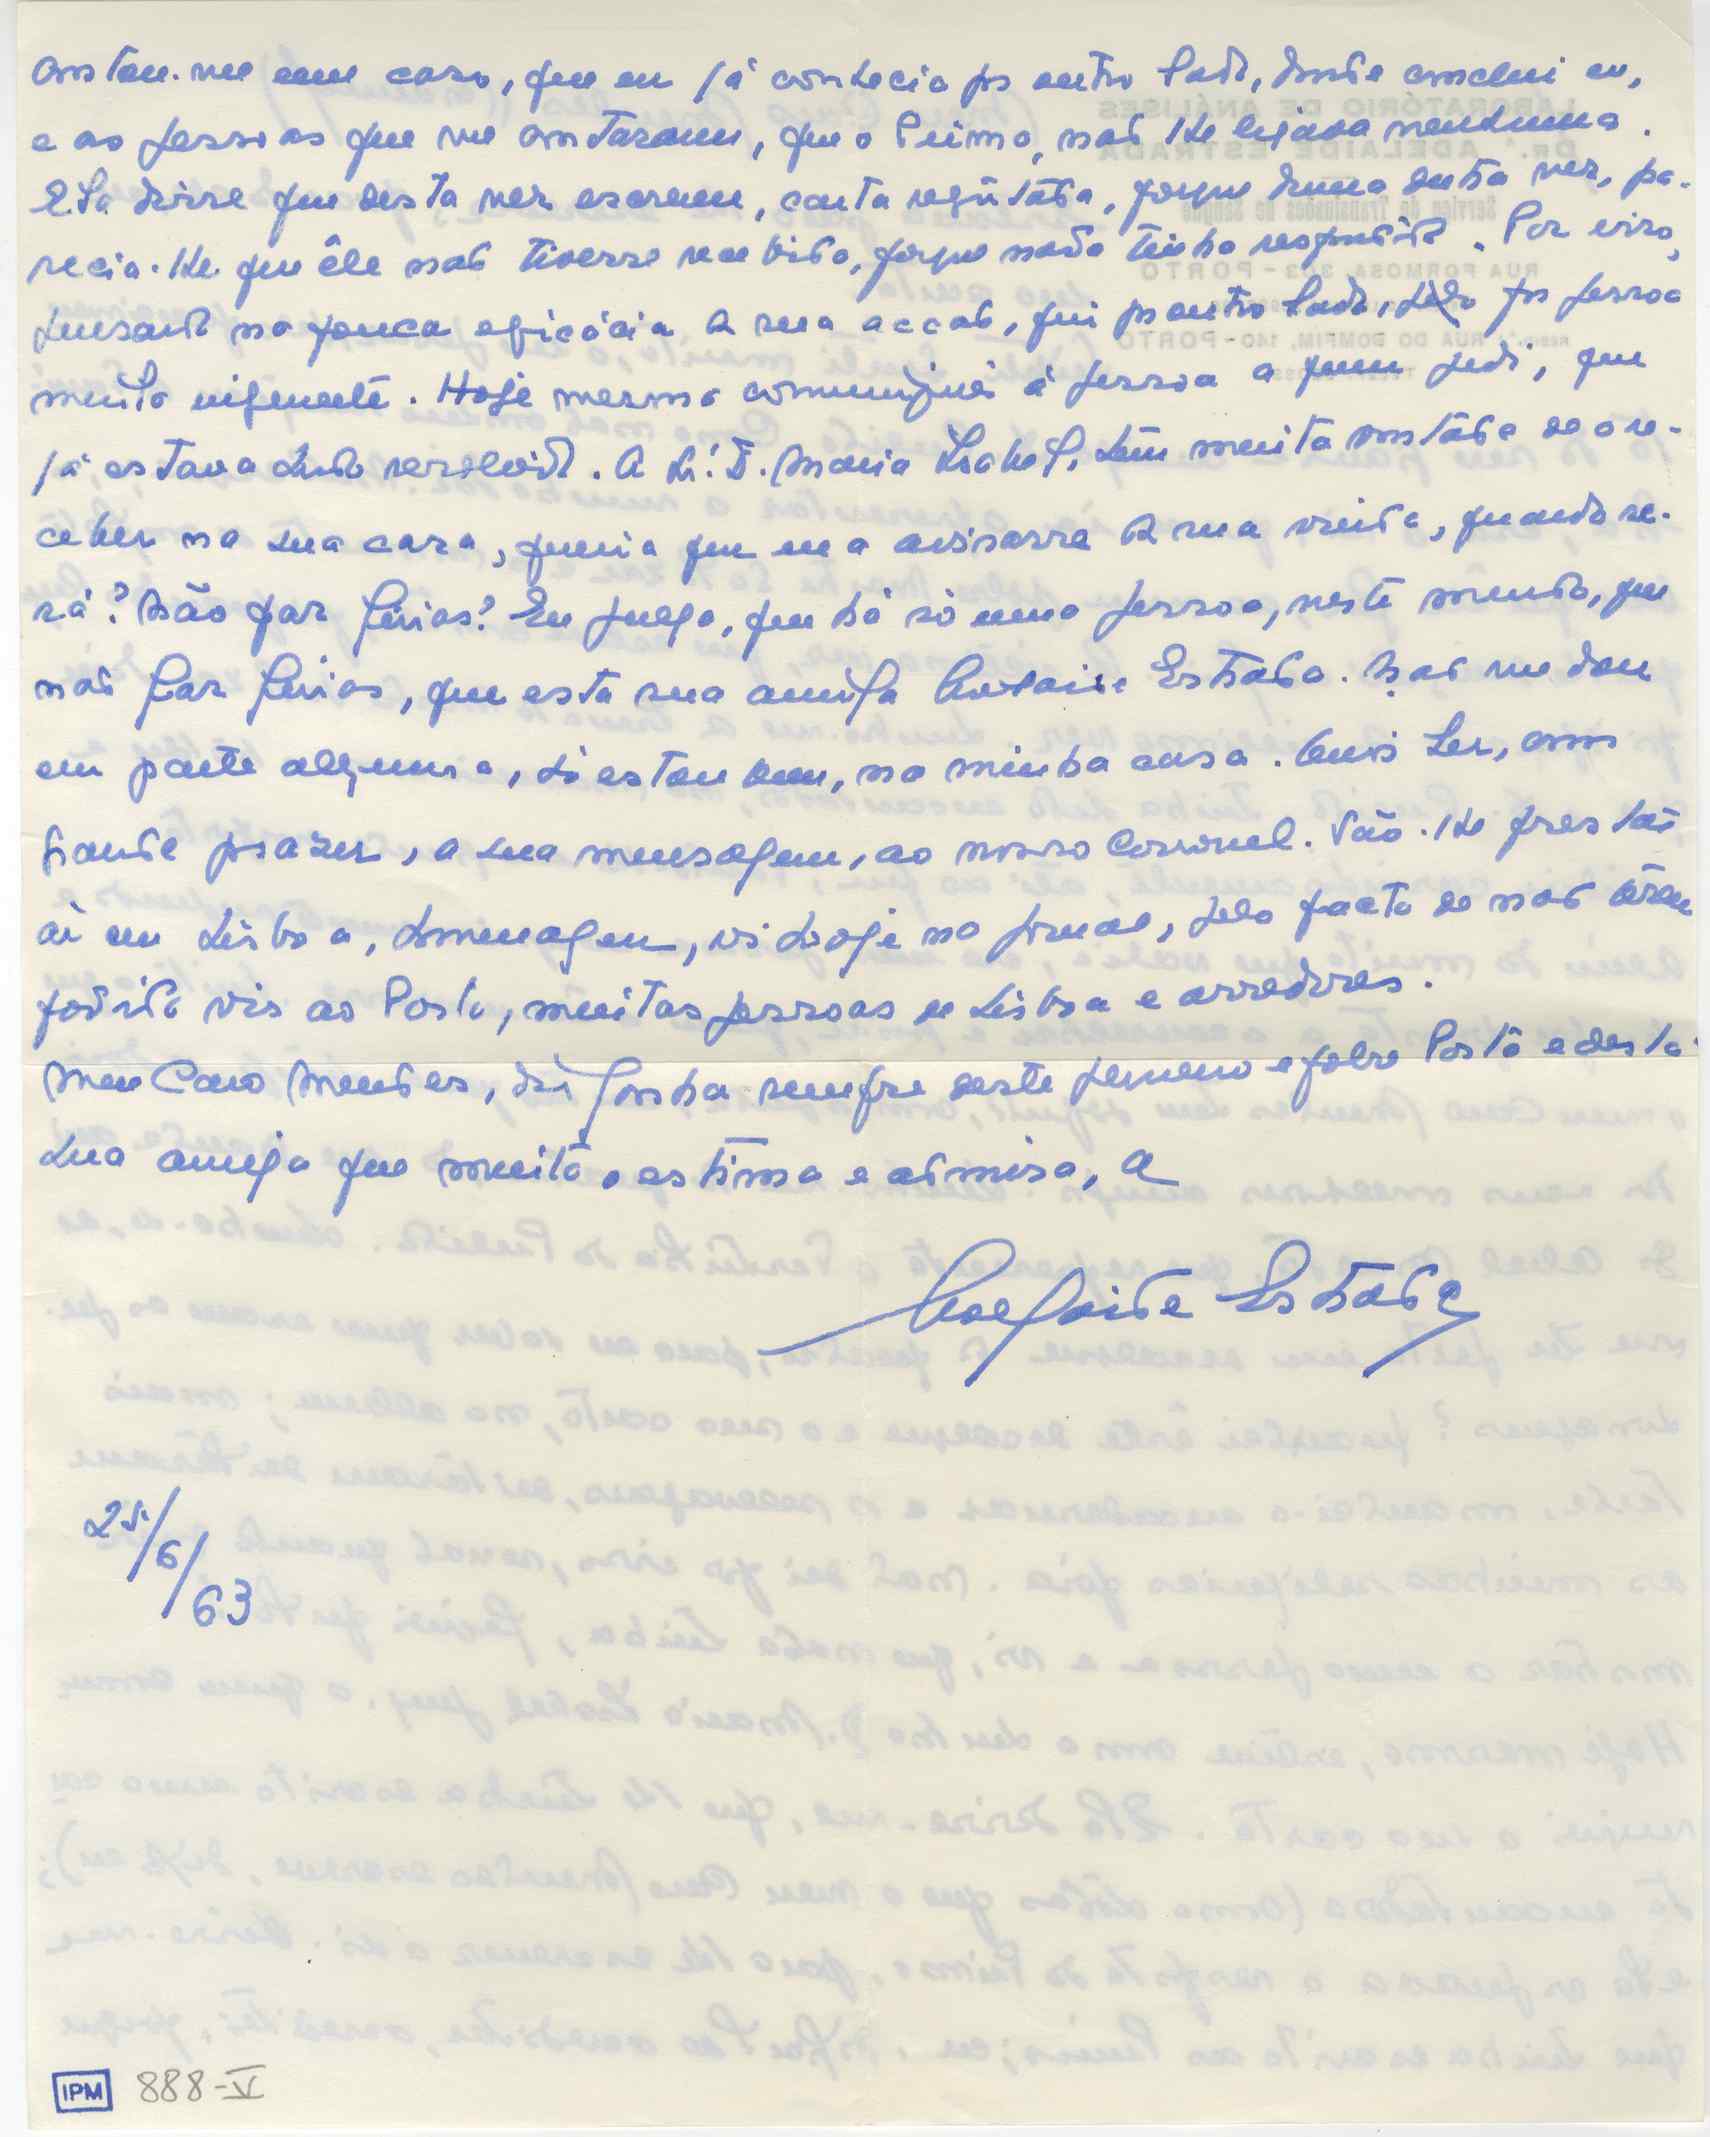 contou-me um caso, que eu já conhecia por outro lado, donde conclui eu,
e as pessoas que me contaram, que o Primo, não lhe ligava nenhuma.
Ela disse que desta vez escreveu, carta registada, porque duma outra vez, pa-
recia-lhe que êle não tivesse recebido, porque nada tinha respondido. Por isso,
pensando na pouca eficácia da sua acção, fui por outro lado, pela pessoa
muito influente. Hoje mesmo comuniquei á pessoa a quem pedi, que
já estava tudo resolvido. A Sr.ª D. Maria Isabel, têm muita vontade de o re-
ceber na sua casa, queria que eu a avisasse da sua vinda, quando se-
rá? Não faz férias? Eu julgo, que há só uma pessoa, neste mundo, que
não faz férias, que esta sua amiga Adelaide Estrada. Não me dou
em parte alguma, só estou bem, na minha casa. Quis ler, com
grande prazer, a sua mensagem, ao nosso Coronel. Vão-lhe prestar
aí em Lisboa, homenagem, vi hoje no jornal, pelo facto de não terem
podido vir ao Porto, muitas pessoas de Lisboa e arredores.
Meu Caro Mendes, disponha sempre deste pequeno e pobre Porto e desta
sua amiga que muito o estima e admira, a
Adelaide Estrada
25/6/63
IPM 888-V